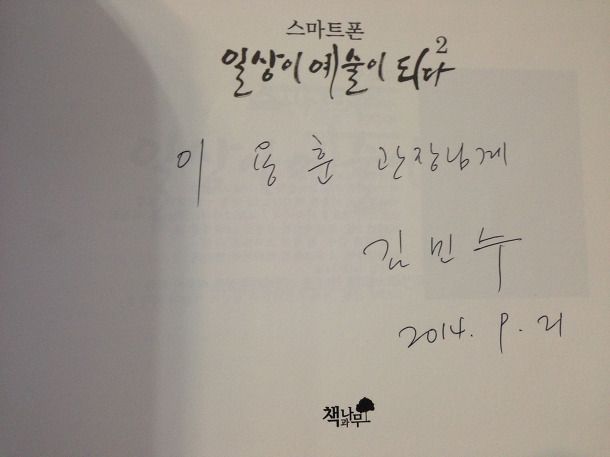 스마트폰
일상이 예술이 되다 2
이 용 훈 관장님께
김 민 수
2014. 9. 21
책과나무